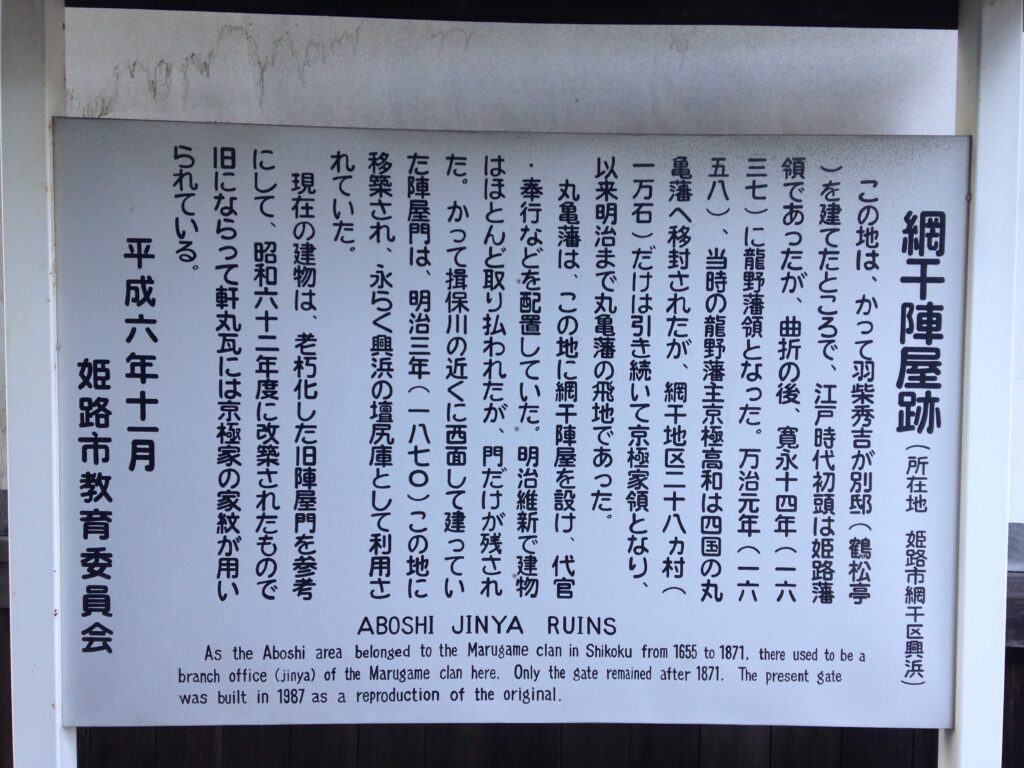 網干陣屋跡(所在地 姫路市網干区興浜)
この地は、かって羽柴秀吉が別邸(鶴松亭
)を建てたところで、江戸時代初頭は姫路藩
領であったが、曲折の後、寛永十四年(一六
三七)に龍野藩領となった。万治元年(一六
五八)、当時の龍野藩主京極高和は四国の丸
亀藩へ移封されたが、網干地区二十八ヵ村(
一万石)だけは引き続いて京極家領となり、
以来明治まで丸亀藩の飛地であった。
丸亀藩は、この地に網干陣屋を設け、代官
・奉行などを配置していた。明治維新で建物
はほとんど取り払われたが、門だけが残され
た。かって揖保川の近くに西面して建ってい
た陣屋門は、明治三年(一八七〇)この地に
移築され、永らく興浜の壇尻庫として利用さ
れていた。
現在の建物は、老朽化した旧陣屋門を参考
にして、昭和六十二年度に改築されたもので
旧にならって軒丸瓦には京極家の家紋が用い
られている。
平成六年十一月
姫路市教育委員会
ABOSHI JINYA RUINS
As the Aboshi area belonged to the Marugame clan in Shikoku from 1655 to 1871, there used to be a
branch office (jinya) of the Marugame clan here. Only the gate remained after 1871. The present gate
was built in 1987 as a reproduction of the original.